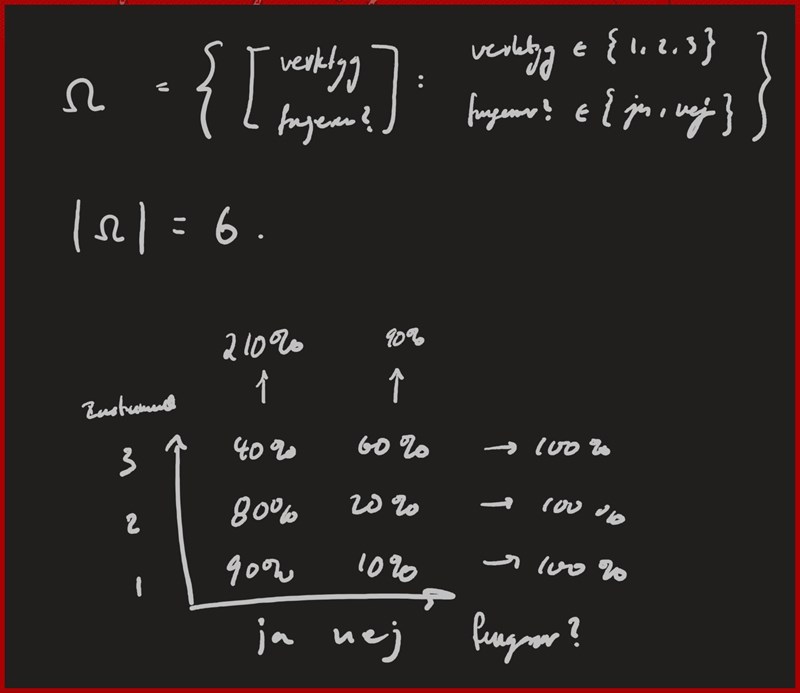 Ω = { [ verktyg : verktyg ∈ {1, 2, 3}
fungerar? ] fungerar? ∈ {ja, nej} }
|Ω| = 6.
210% 90%
↑ ↑
Instrument
3 40% 60% → 100%
2 80% 20% → 100%
1 90% 10% → 100%
ja nej fungerar?